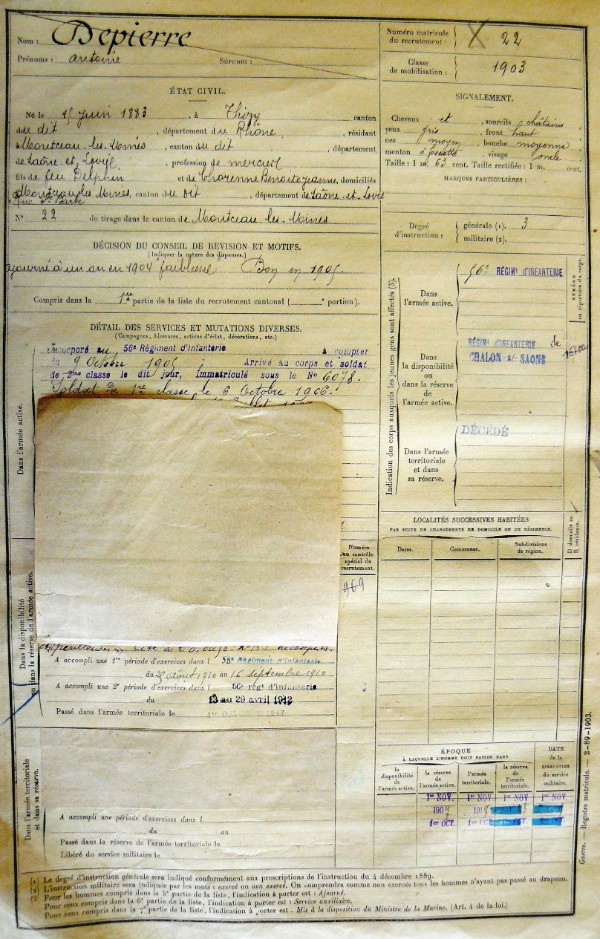 Nom : Depierre
Prénoms : antoine Surnom :
Numéro matricule du recrutement : 22
Classe de mobilisation : 1903
ÉTAT CIVIL.
Né le 15 juin 1883, à Thizy, canton
du dit, département du Rhône, résidant
à Montceau-les-Mines, canton du dit, département
de Saône et Loire, profession de
fils de feu Delphin et de Benoîte Jeanne, domiciliés
Montceau les Mines, canton du Dit, département de Saône-et-Loire
N° 22 de tirage dans le canton de Montceau-les-Mines
SIGNALEMENT.
Cheveux et sourcils châtains
yeux gris, front haut
nez moyen, bouche moyenne
menton à fossette, visage ovale
Taille : 1 m. 63 cent. Taille rectifiée : 1 m. cent.
MARQUES PARTICULIÈRES :
Degré d'instruction : générale (1). 3
militaire (2).
DÉCISION DU CONSEIL DE REVISION ET MOTIFS.
(Indiquer la nature des dispenses.)
ajourné à un an en 1904 faiblesse Bon en 1905
Compris dans la 1re partie de la liste du recrutement cantonal ( portion).
DÉTAIL DES SERVICES ET MUTATIONS DIVERSES.
(Campagnes, blessures, actions d'éclat, décorations, etc.)
Incorporé au 56e Régiment d'Infanterie à compter
du 9 Octobre 1905; Arrivé au corps et soldat
de 2ème classe le dit jour, Immatriculé sous le N° 6078.
Soldat de 1re classe le 6 Octobre 1906.
Dans l'armée active.
Numéro au contrôle spécial du recrutement.
469
Dans la disponibilité ou dans la réserve de l'armée active.
A accompli une 1re période d'exercices dans l 56e Régiment d'Infanterie
du août 1910 au 16 septembre 1910
A accompli une 2e période d'exercices dans l 56e rég' d'Infanterie
du 13 au 29 avril 1912
Passé dans l'armée territoriale le
Dans l'armée territoriale et dans sa réserve.
A accompli une période d'exercices dans l
du au
Passé dans la réserve de l'armée territoriale le
Libéré du service militaire le
Indication des corps auxquels les jeunes gens sont affectés (3).
Dans l'armée active. 56e RÉGIM' D'INFANTERIE
Dans la disponibilité ou dans la réserve de l'armée active. RÉGIM' D'INFANTERIE de
CHALON s/ SAONE
Dans l'armée territoriale et dans sa réserve. DÉCÉDÉ
NUMÉRO au répertoire du corps.
LOCALITÉS SUCCESSIVES HABITÉES
PAR SUITE DE CHANGEMENTS DE DOMICILE OU DE RÉSIDENCE.
Dates. Communes. Subdivisions de région. D domicile ou R résidence.
ÉPOQUE
À LAQUELLE L'HOMME DOIT PASSER DANS
DATE de la LIBÉRATION du service militaire.
la disponibilité de l'armée active. la réserve de l'armée active. l'armée territoriale. la réserve de l'armée territoriale.
1er NOV. 1er NOV. 1er NOV. 1er NOV.
1er OCT. 1er OCT.
Guerre. — Registre matricule. 2-89-1903.
(1) Le degré d'instruction générale sera indiqué conformément aux prescriptions de l'instruction du 4 décembre 1889.
(2) L'instruction militaire sera indiquée par les mots : exercé ou non exercé. On comprendra comme non exercés tous les hommes n'ayant pas passé au drapeau.
(3) Pour les hommes compris dans la 5e partie de la liste, l'indication à porter est : Ajourné.
Pour ceux compris dans la 6e partie de la liste, l'indication à porter est : Service auxiliaire.
Pour ceux compris dans la 7e partie de la liste, l'indication à porter est : Mis à la disposition du Ministre de la Marine. (Art. 4 de la loi.)